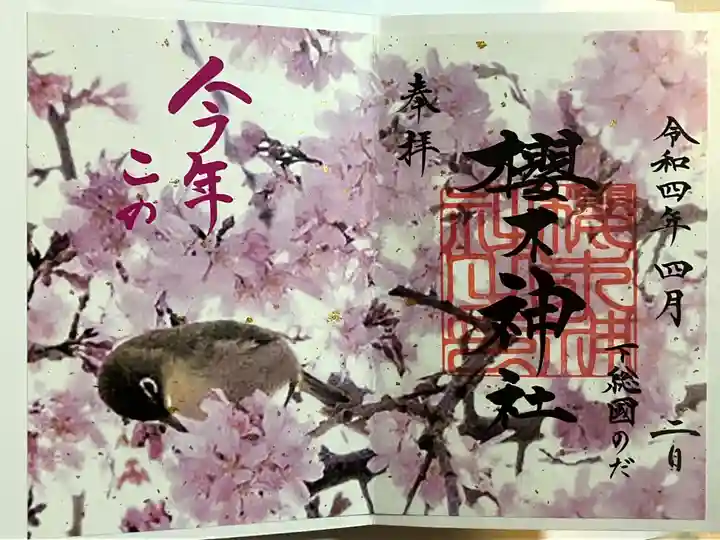 令和四年 四月 二日
下総國のだ
櫻木神社
奉拝
今年
この